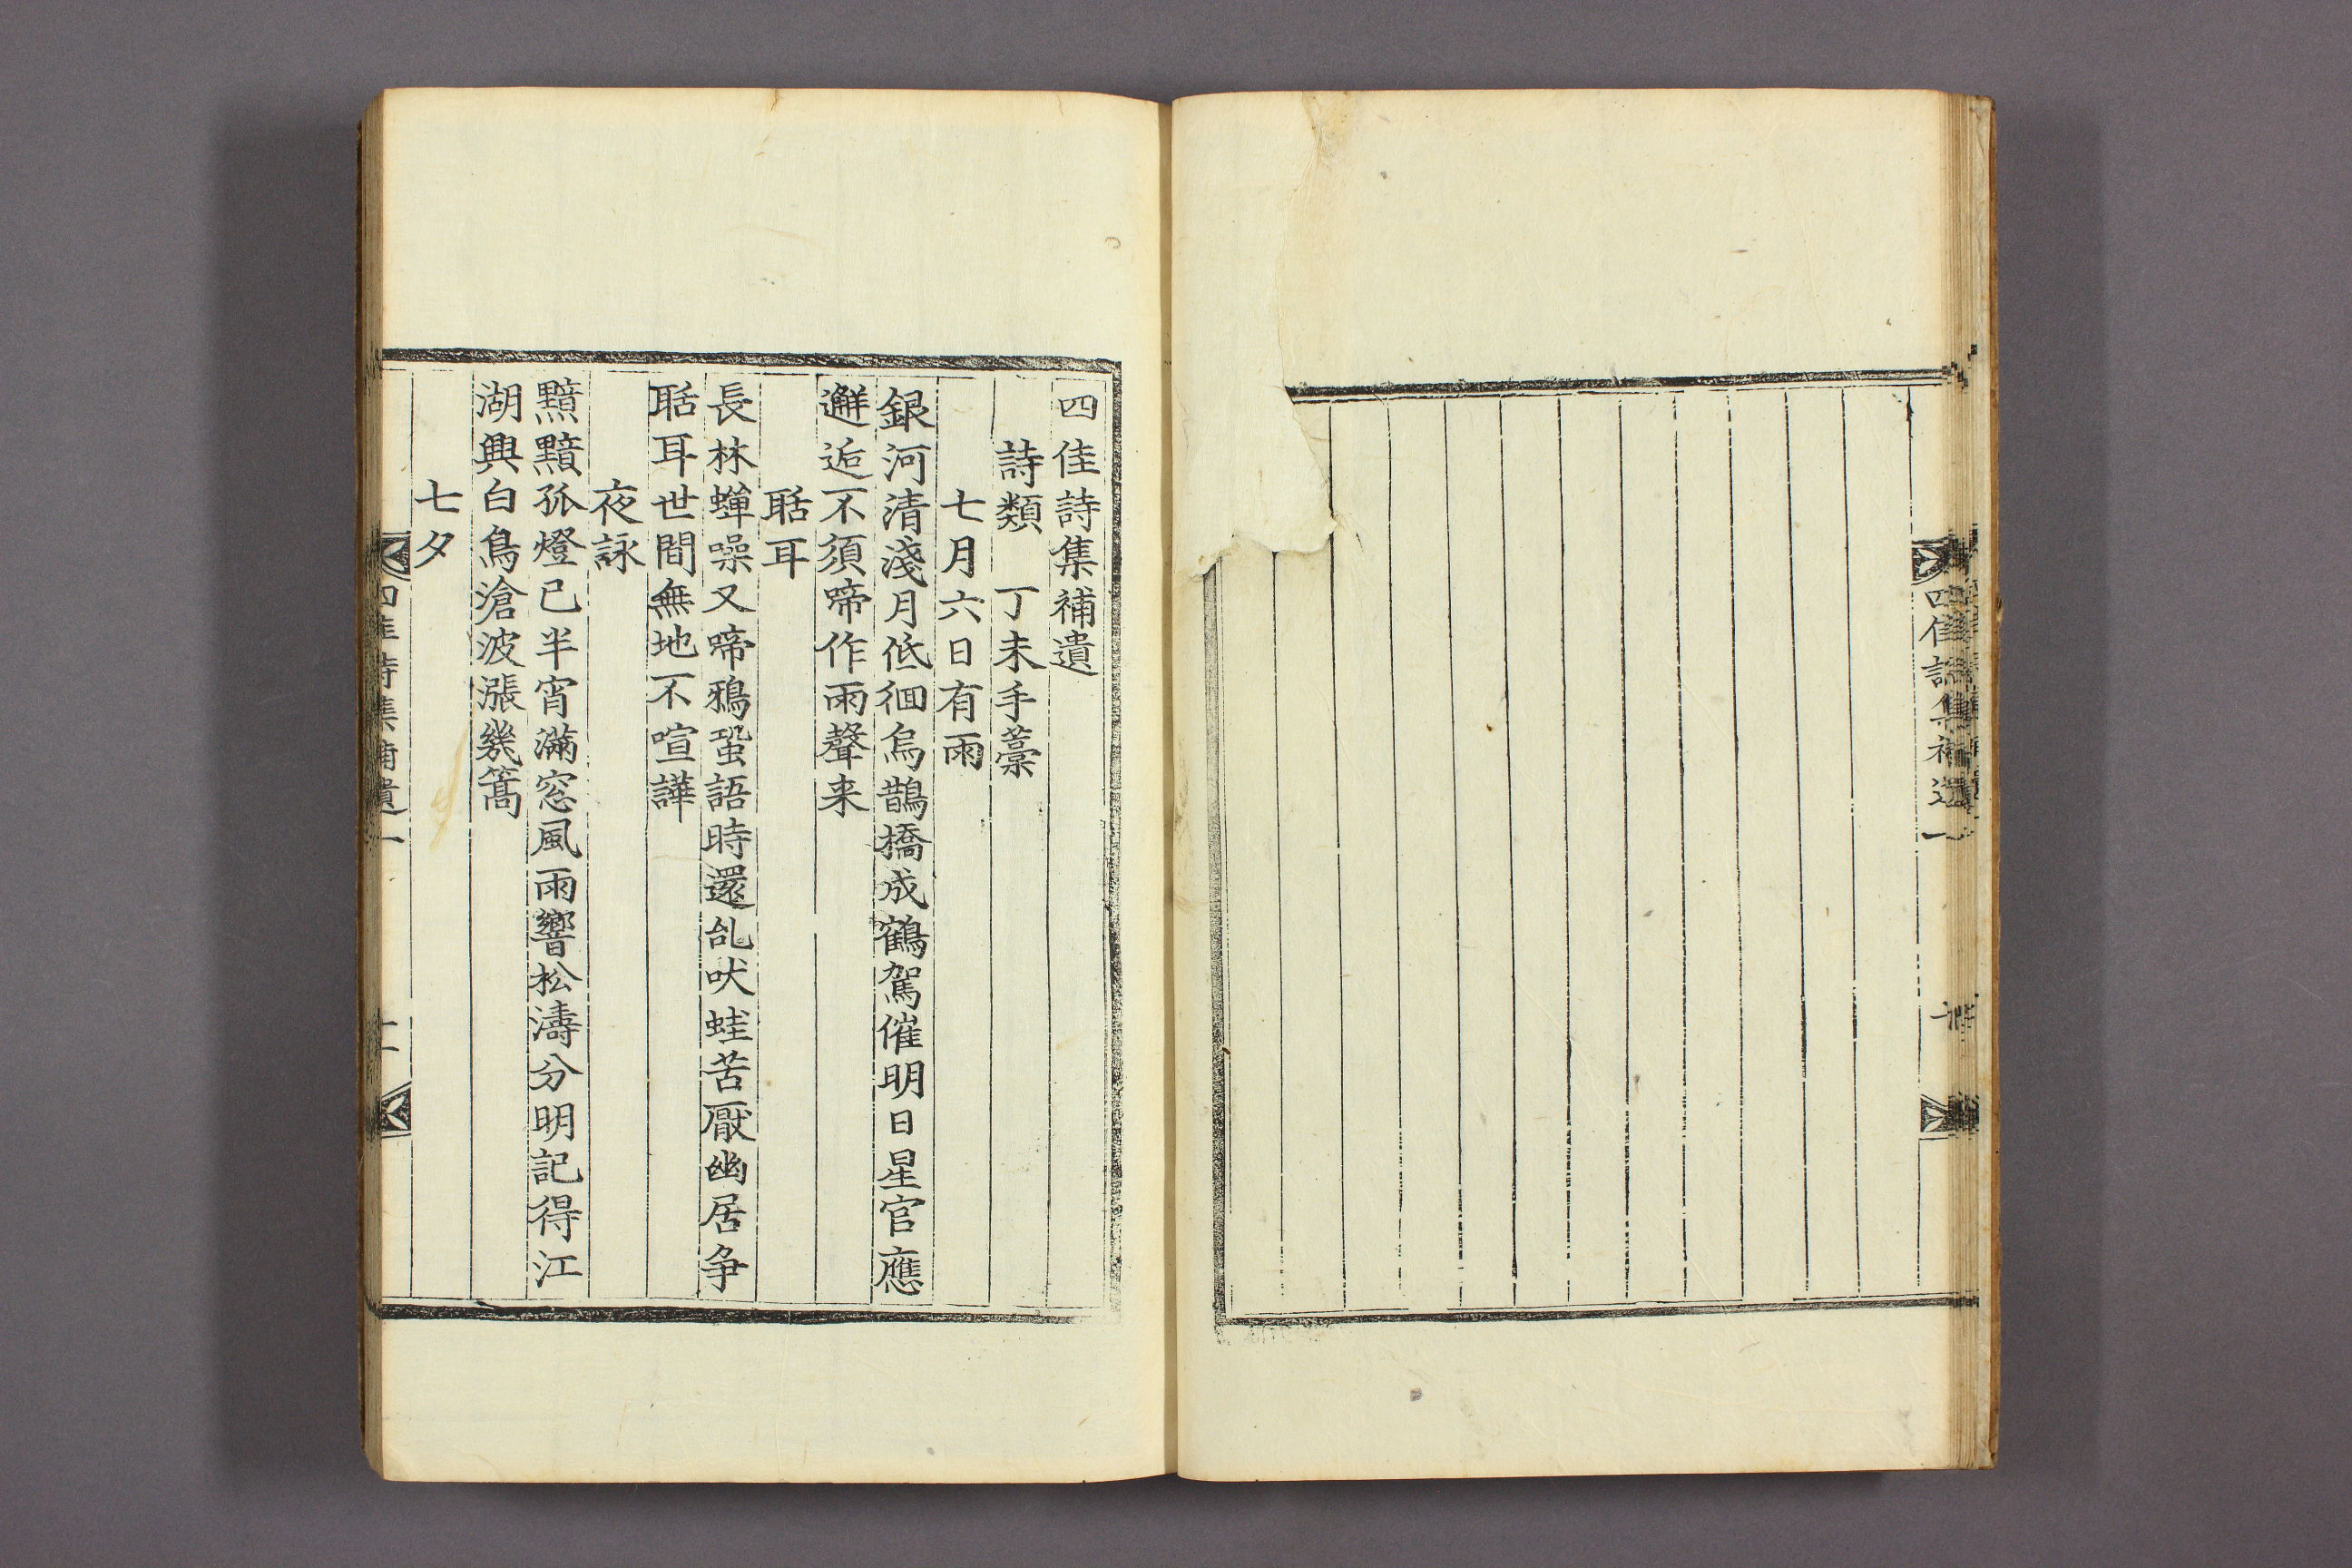 四佳詩集補遺一
四佳詩集補遺
詩類　丁未手藁
七月六日有雨
銀河清淺月低徊烏鵲橋成鶴駕催明日星官應
邂逅不須啼作雨聲来
聒耳
長林蟬噪又啼鴉蛩語時還乱吠蛙苦厭幽居争
聒耳世間無地不喧譁
夜詠
黯黯孤燈已半宵滿窓風雨響松濤分明記得江
湖興白鳥滄波漲幾篙
七夕
四佳詩集補遺一